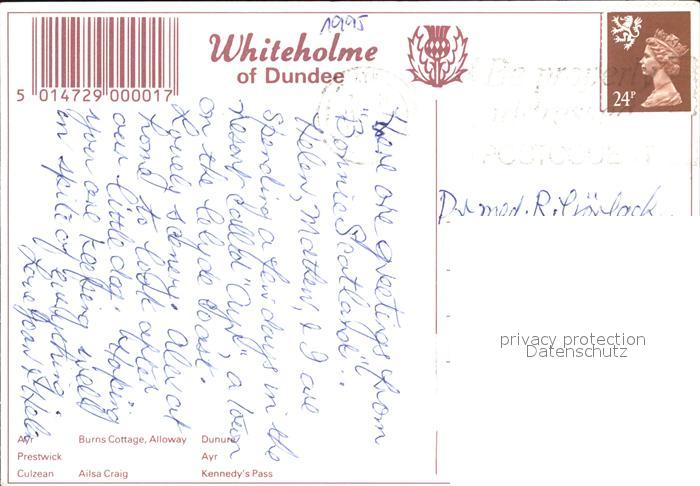 1995
Whiteholme
of Dundee
5 014729 000017
24P
Be properly
addressed
POSTCODE IT
Here are greetings from
"Bonnie Scotland"..
Helen, Mathew, & I are
spending a few days in the
resort called "Ayr", a town
on the Clyde Coast.
Lovely scenery. Alis at
home to look after
our little dog. Hoping
you are keeping well
in spite of everything.
Love Jean & Helen
Dr. med. R.
privacy protection
Datenschutz
Ayr Burns Cottage, Alloway Dunure
Prestwick Ayr
Culzean Ailsa Craig Kennedy's Pass